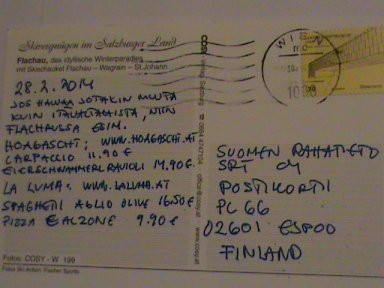 Skivergnügen im Salzburger Land
Flachau, das idyllische Winterparadies
mit Skischaukel Flachau – Wagrain – St. Johann
28.2.2014
JOS HALUAA JOTAKIN MUUTA
KUIN ITÄVALTALAISTA, NIIN
FLACHAUSSA ESIM.
HOAGASCHT; WWW.HOAGASCHT.AT
CARPACCIO 11.90 €
EIERSCHWAMMERLRAVIOLI 14.90 €
LA LUMA: WWW.LALUMA.AT
SPAGHETTI AGLIO OLIO 16.50 €
PIZZA CALZONE 9.90 €
Fotos: COSY - W 199
Fotos Ski Action: Fischer Sports
COSY
Verlag Salzburg
0664 4747104
office@cosy.at
www.cosy.at
WIEN
SUOMEN RAHATIETO
SRT OY
POSTIKORTI
PL 66
02601 ESPOO
FINLAND